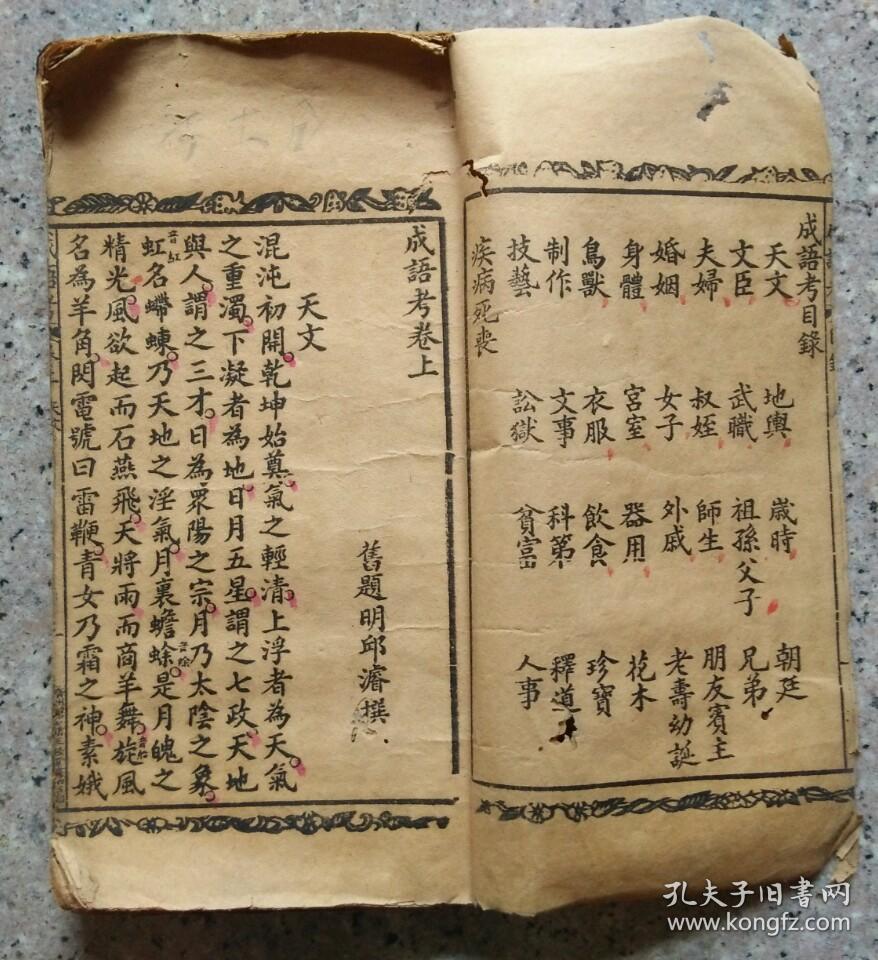 成語考目錄
天文 地輿 歲時 朝廷
文臣 武職 祖孫父子 兄弟
夫婦 叔姪 師生 朋友賓主
婚姻 女子 外戚 老壽幼誕
身體 宮室 器用 花木
鳥獸 衣服 飲食 珍寶
制作 文事 科第 釋道
技藝 訟獄 貧富 人事
疾病死喪
成語考卷上
舊題明邱濬撰
天文
混沌初開。乾坤始奠。氣之輕清。上浮者為天。氣
之重濁。下凝者為地。日月五星。謂之七政。天地
與人。謂之三才。日為眾陽之宗。月乃太陰之象。
虹音紅名螮蝀。乃天地之淫氣。月裏蟾蜍音除。是月魄之
精光。風欲起而石燕飛。天將雨而商羊舞。旋風
名為羊角。閃電號曰雷鞭。青女乃霜之神。素娥
孔夫子旧书网
www.kongfz.com